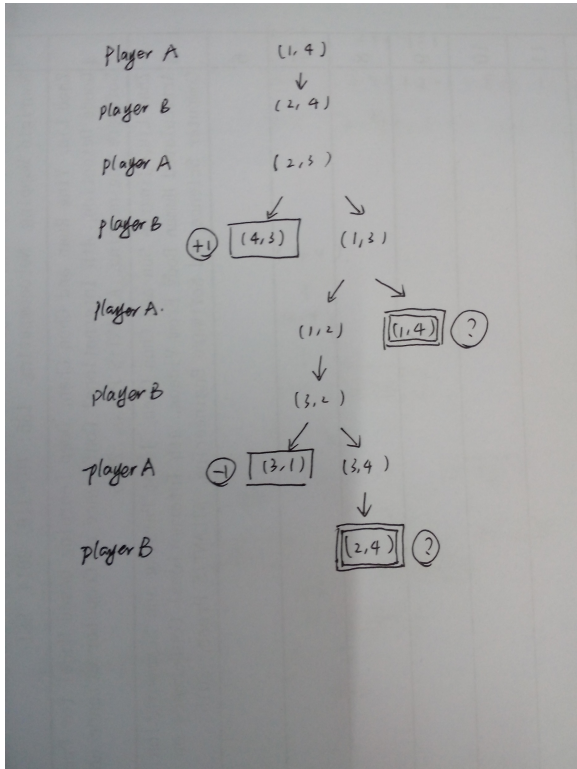 Player A (1,4)
player B (2,4)
player A (2,3)
player B +1 (4,3) (1,3)
Player A. (1,2) (1,4) ?
player B (3,2)
player A -1 (3,1) (3,4)
player B (2,4) ?